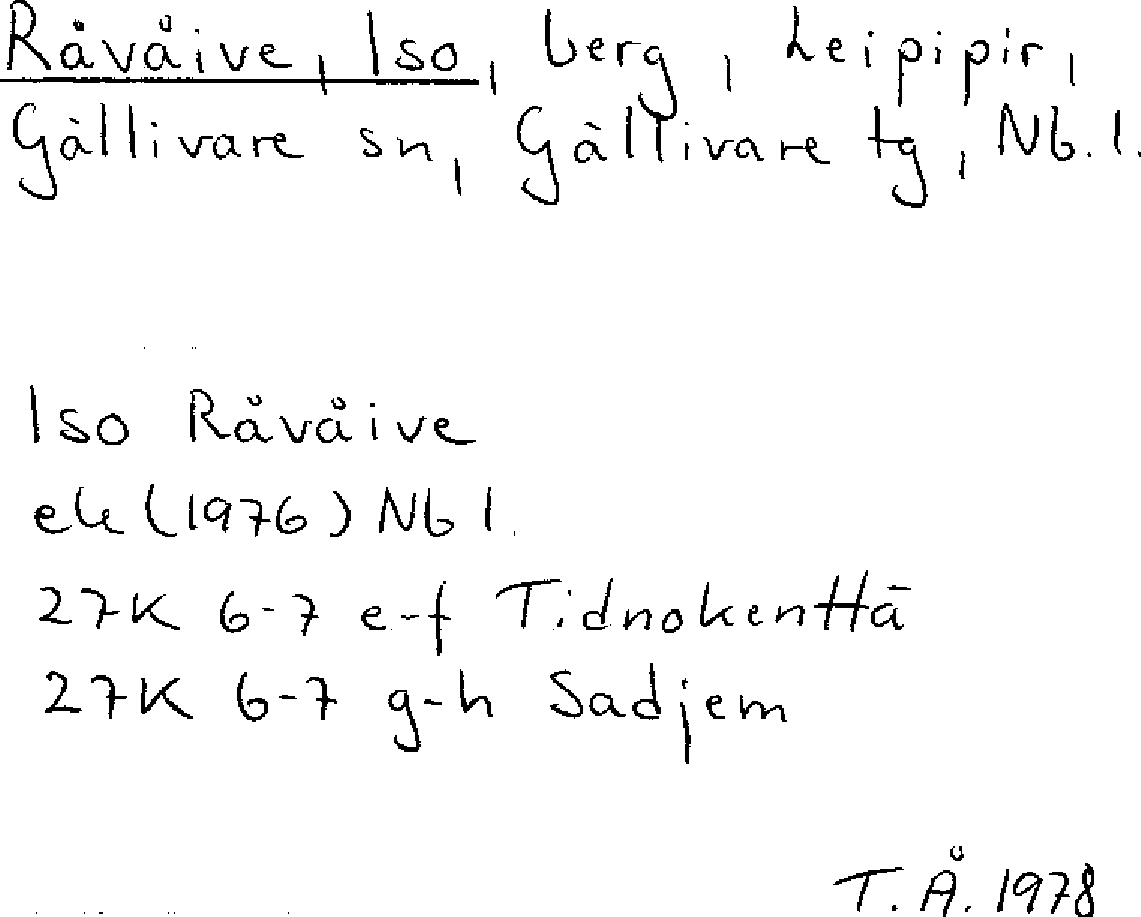 Råvåive, Iso, berg, Leipipir,
Gällivare sn, Gällivare tg, Nb. l.
Iso Råvåive
ek (1976) Nb l.
27K 6-7 e-f Tidnokenttä
27K 6-7 g-h Sadjem
T. Å. 1978